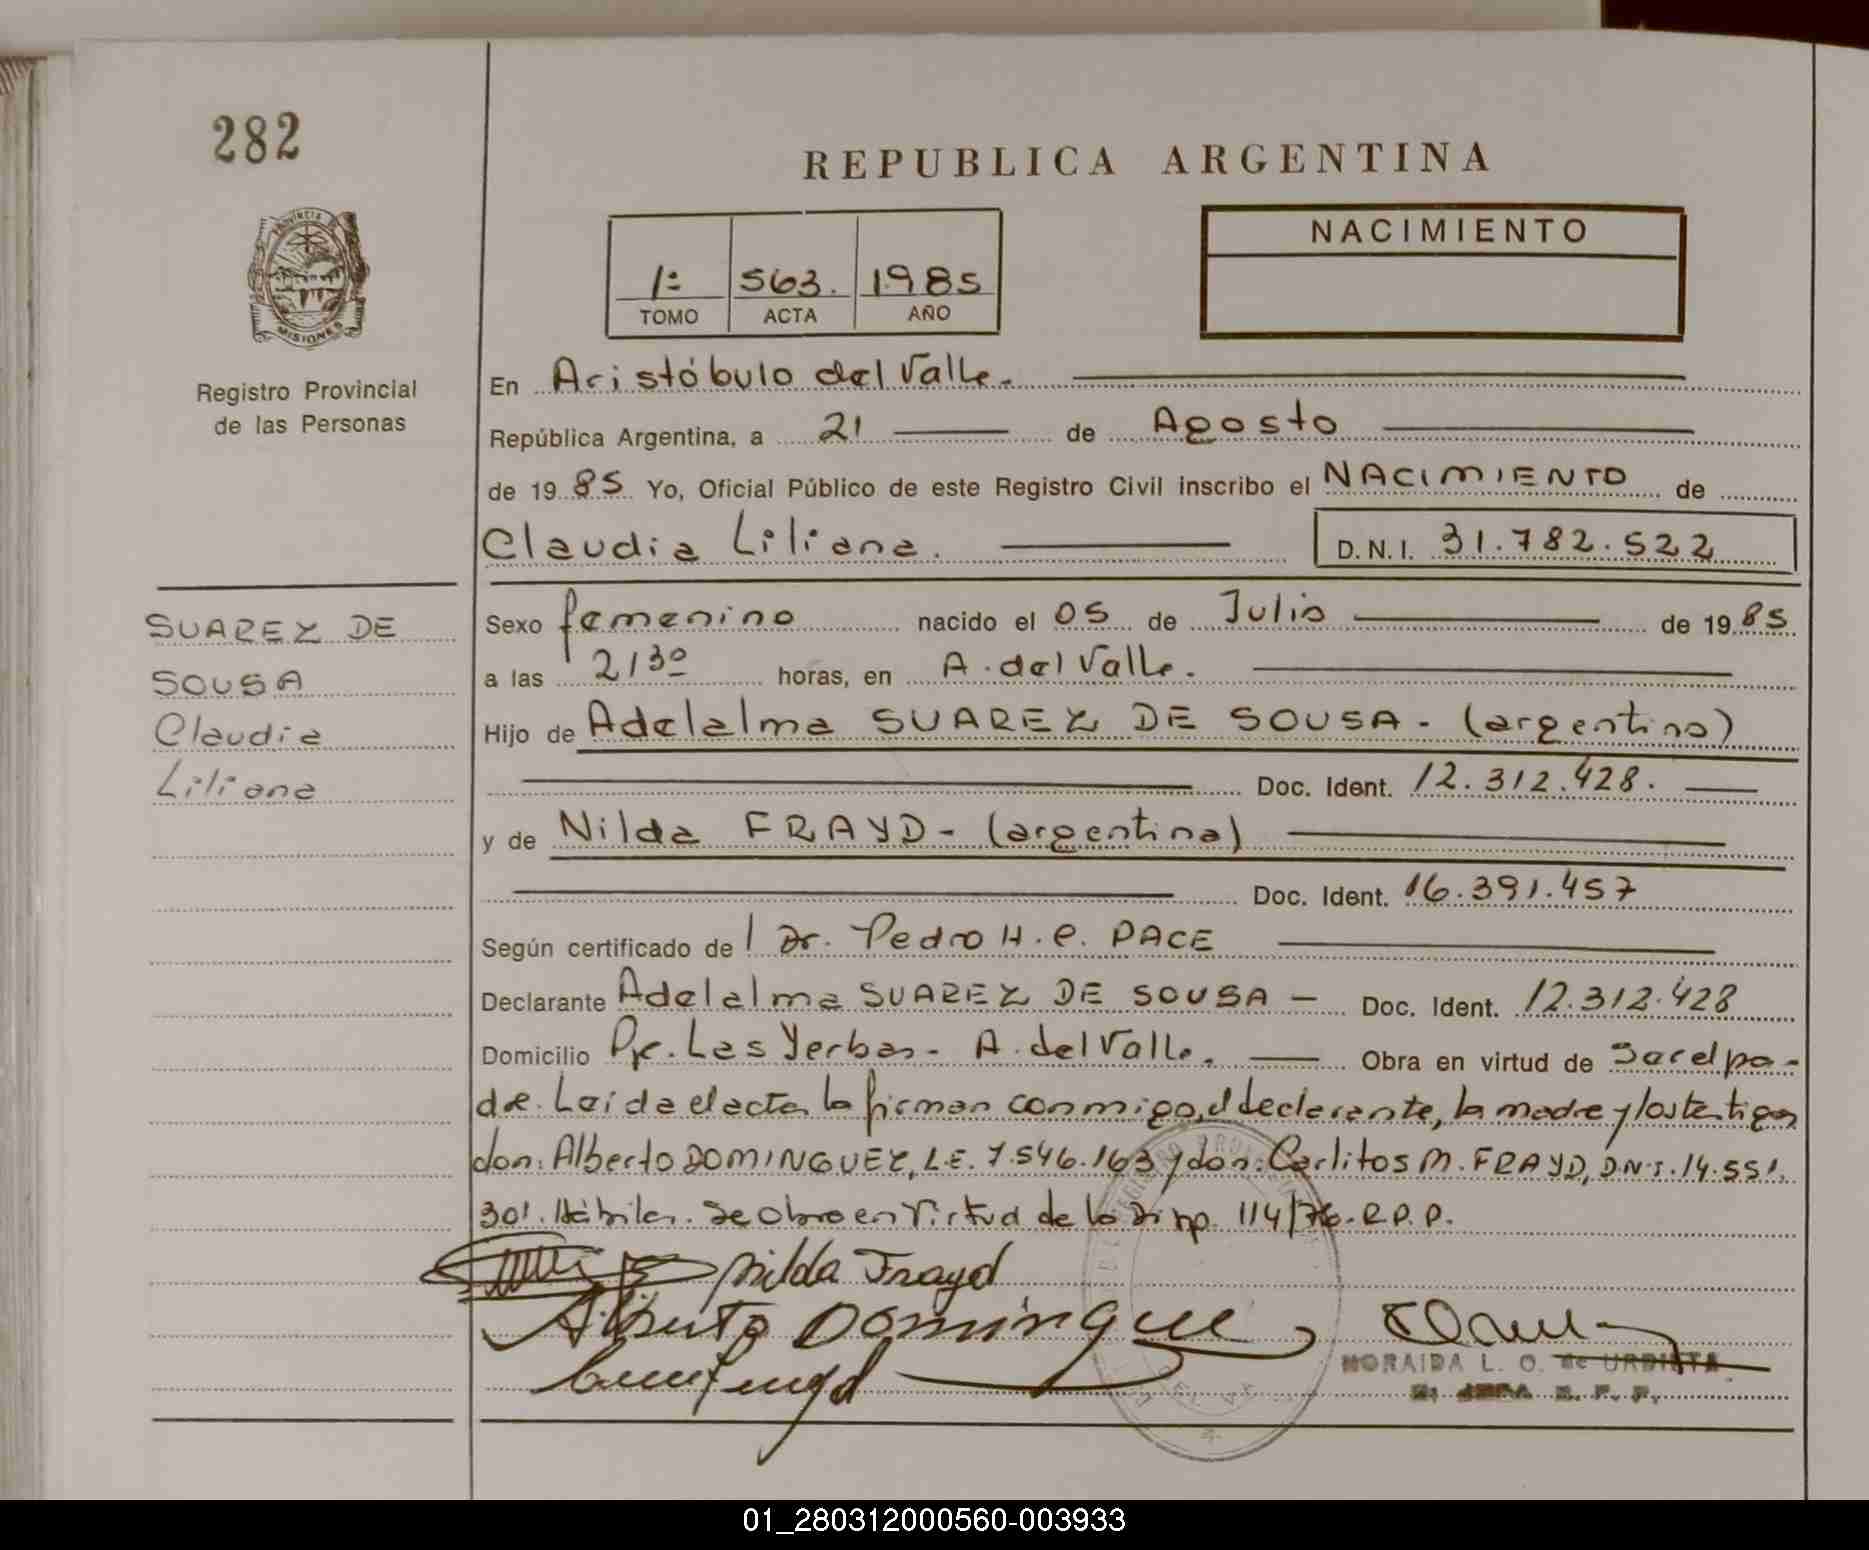 282
REPUBLICA ARGENTINA
PROVINCIA DE MISIONES
1º 563. 1985
TOMO ACTA AÑO
NACIMIENTO
Registro Provincial
de las Personas
En Aristóbulo del Valle.
República Argentina, a 21 de Agosto
de 1985 Yo, Oficial Público de este Registro Civil inscribo el NACIMIENTO de
Claudia Liliana. D.N.I. 31.782.522
SUAREZ DE
SOUSA
Claudia
Liliana
Sexo femenino nacido el 05 de Julio de 1985
a las 21 30 horas, en A. del Valle.
Hijo de Adelalma SUAREZ DE SOUSA - (argentino)
Doc. Ident. 12.312.428.
y de Nilda FRAYD - (argentina)
Doc. Ident. 16.391.457
Según certificado de l Dr. Pedro H. C. PACE
Declarante Adelalma SUAREZ DE SOUSA - Doc. Ident. 12.312.428
Domicilio Pje. Las Yerbas - A. del Valle. Obra en virtud de Ser el pa-
dre. Leida el acta la firman conmigo, el declarante, la madre y los testigos
don: Alberto DOMINGUEZ, L.E. 7.546.163 y don: Carlitos M. FRAYD, D.N.I. 14.551.
301. Hábiles. Se obro en Virtud de la Disp. 114/76. R.P.P.
Nilda Frayd
Alberto Dominguez
NORAIDA L. O. de URDIETA
R. P. P.
01_280312000560-003933